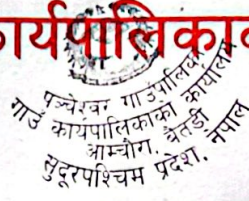 कार्यपालिकाको
पञ्चेश्वर गाउँपालिका
गाउँ कार्यपालिकाको कार्यालय
आमचौरा, बैतडी
सुदूरपश्चिम प्रदेश, नेपाल